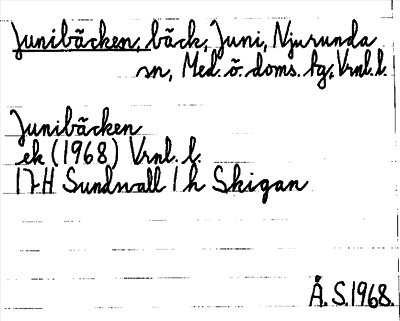 Junibäcken, bäck, Juni, Njurunda
sn, Med. ö. doms. tg, Vrnl. l.
Junibäcken
ek (1968) Vrnl. l.
17H Sundsvall 1 h Skigan
Å.S. 1968.